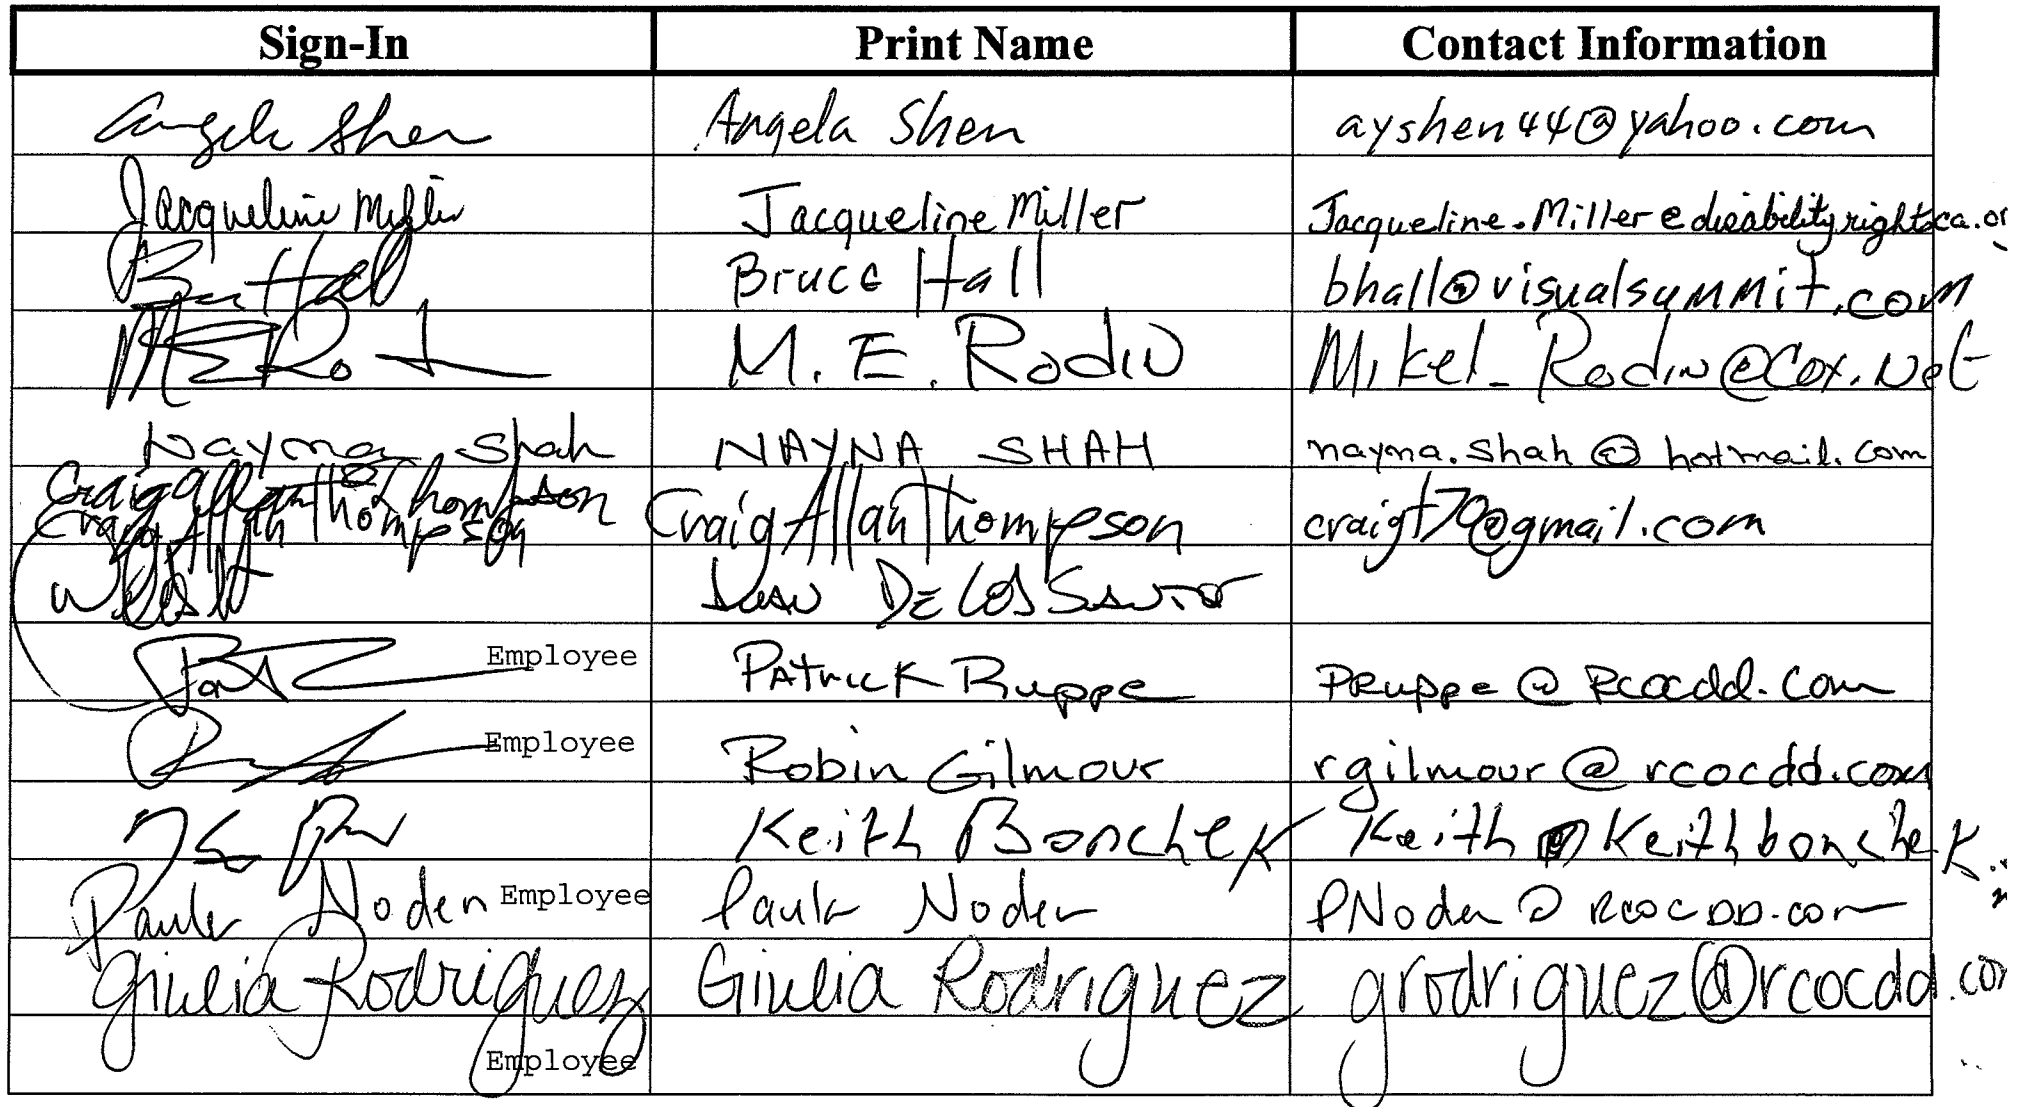 Sign-In Print Name Contact Information
Angela Shen Angela Shen ayshen44@yahoo.com
Jacqueline Miller Jacqueline Miller Jacqueline.Miller@disabilityrightsca.or
Bruce Hall bhall@visualsummit.com
M. E. Rodin Mikel_Rodin@Cox.Net
Nayna Shah NAYNA SHAH nayna.shah@hotmail.com
Craig Allan Thompson
Craig Allan Thompson Craig Allan Thompson craigt70@gmail.com
De Los Santos
Employee Patrick Ruppe PRuppe@Rcocdd.com
Employee Robin Gilmour rgilmour@rcocdd.com
Keith Bonchek Keith@Keithbonchek.
Paula Noden Employee Paula Noden PNoden@RCOCDD.com
Giulia Rodriguez Giulia Rodriguez grodriguez@rcocdd.com
Employee